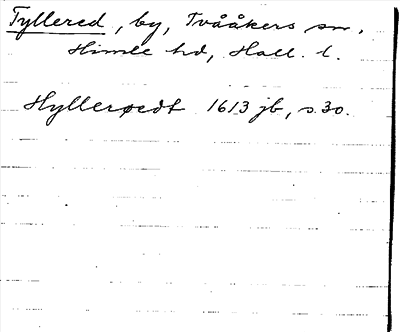 Tyllered, by, Tvååkers sn,
Himle hd, Hall. l.
Hyllerøedt 1613 jb, s. 30.